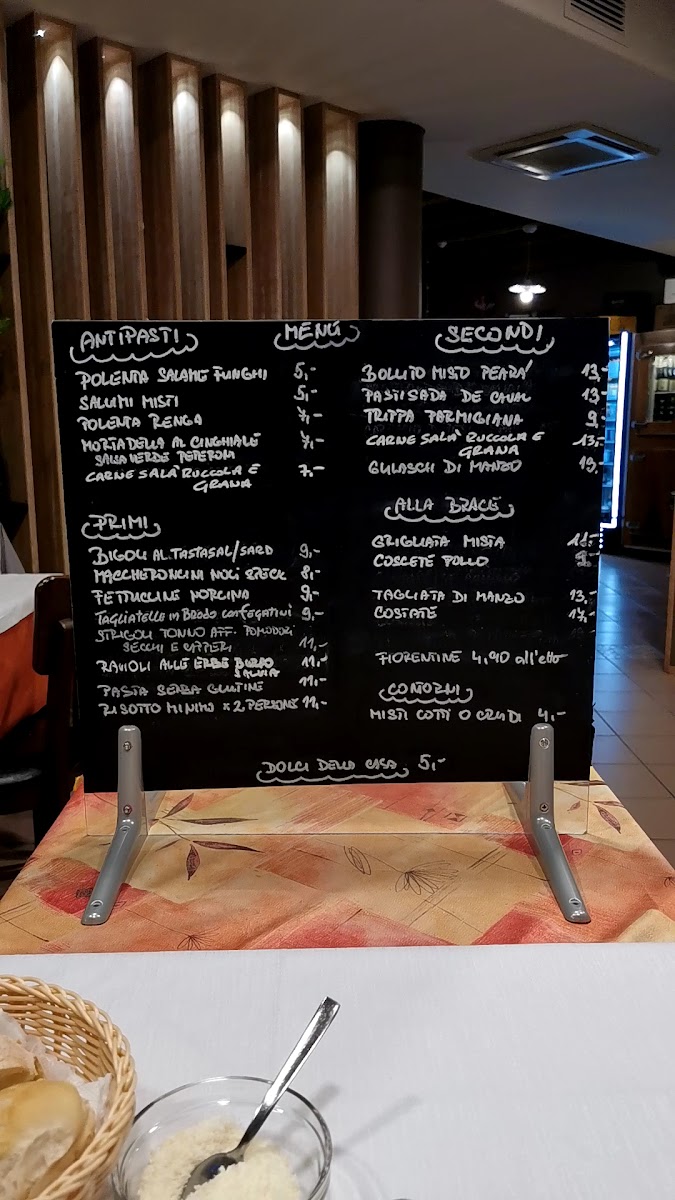 MENÙ
ANTIPASTI
POLENTA SALAME FUNGHI 5,-
SALUMI MISTI 5,-
POLENTA RENGA 7,-
MORTADELLA AL CINGHIALE 7,-
SALSA VERDE PEPERONI
CARNE SALA' RUCCOLA E 7,-
GRANA
PRIMI
BIGOLI AL TASTASAL/SARD 9,-
MACCHERONCINI NOCI SPECK 8,-
FETTUCCINE NORCINA 9,-
Tagliatelle in Brodo con fegatini 9,-
STRIGOLI TONNO AFF. POMODORI
SECCHI E CAPPERI 11,-
RAVIOLI ALLE ERBE BURRO 11,-
SALVIA
PASTA SENZA GLUTINE 11,-
RISOTTO MINIMO x 2 PERSONE 11,-
SECONDI
BOLLITO MISTO PEARA' 13,-
PASTISADA DE CAVAL 13,-
TRIPPA PARMIGIANA 9,-
CARNE SALA' RUCCOLA E 13,-
GRANA
GULASCH DI MANZO 13,-
ALLA BRACE
GRIGLIATA MISTA
COSCETE POLLO 9,-
TAGLIATA DI MANZO 13,-
COSTATE 17,-
FIORENTINE 4,90 all'etto
CONTORNI
MISTI COTTI O CRUDI 4,-
DOLCI DELLA CASA 5,-